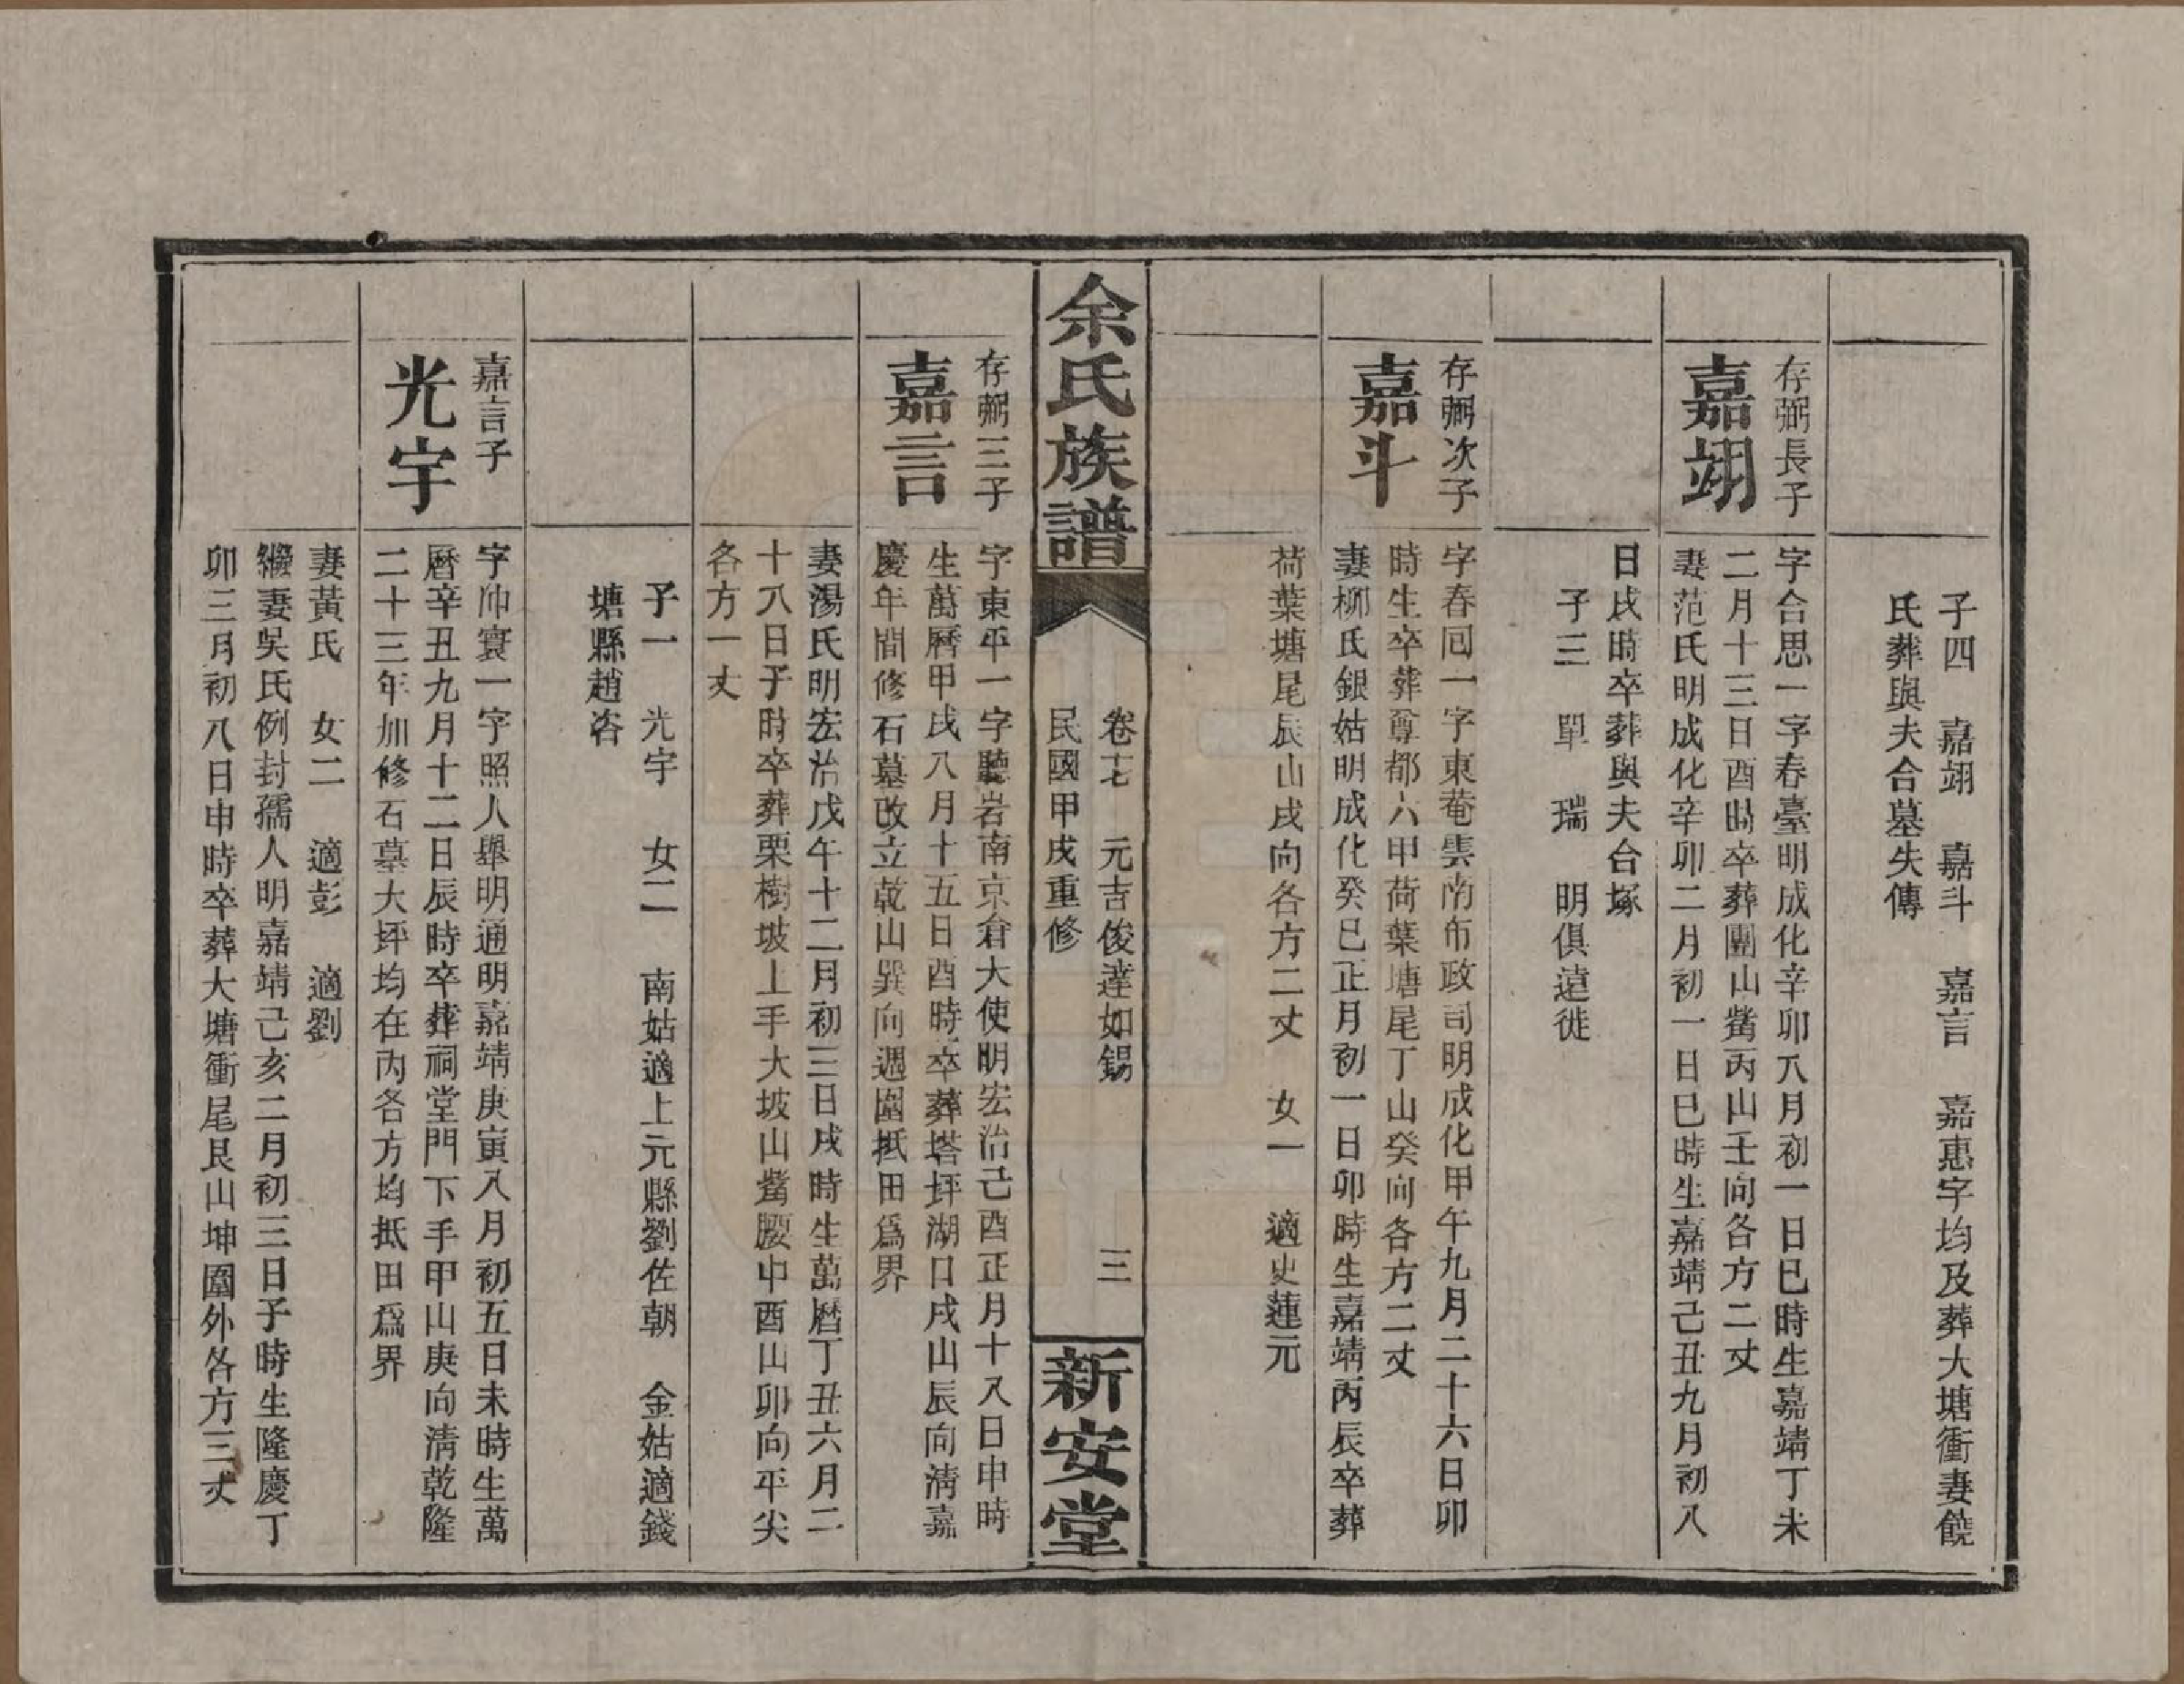 子四　嘉翊　嘉斗　嘉言　嘉惠字均及葬大塘衝妻饒
氏葬與夫合墓失傳
存弼長子
嘉翊
字合思一字春臺明成化辛卯八月初一日巳時生嘉靖丁未
二月十三日酉時卒葬團山觜丙山壬向各方二丈
妻范氏明成化辛卯二月初一日巳時生嘉靖己丑九月初八
日戌時卒葬與夫合塚
子三　單　瑞　明俱遠徙
存弼次子
嘉斗
字春囘一字東菴雲南布政司明成化甲午九月二十六日卯
時生卒葬尊都六甲荷葉塘尾丁山癸向各方二丈
妻柳氏銀姑明成化癸巳正月初一日卯時生嘉靖丙辰卒葬
荷葉塘尾辰山戌向各方二丈　女一　適史蓮元
余氏族譜
卷十七　元吉俊達如錫　三
民國甲戌重修
新安堂
存弼三子
嘉言
字東平一字聽岩南京倉大使明宏治己酉正月十八日申時
生萬曆甲戌八月十五日酉時卒葬塔坪湖口戌山辰向淸嘉
慶年間修石墓改立乾山巽向週圍抵田爲界
妻湯氏明宏治戊午十二月初三日戌時生萬曆丁丑六月二
十八日子時卒葬栗樹坡上手大坡山觜腰中酉山卯向平尖
各方一丈
子一　光宇　女二　南姑適上元縣劉佐朝　金姑適錢
塘縣趙咨
嘉言子
光宇
字帅寰一字照人舉明通明嘉靖庚寅八月初五日未時生萬
曆辛丑九月十二日辰時卒葬祠堂門下手甲山庚向淸乾隆
二十三年加修石墓大坪均在內各方均抵田爲界
妻黃氏　女二　適彭　適劉
繼妻吳氏例封孺人明嘉靖己亥二月初三日子時生隆慶丁
卯三月初八日申時卒葬大塘衝尾艮山坤圍外各方三丈